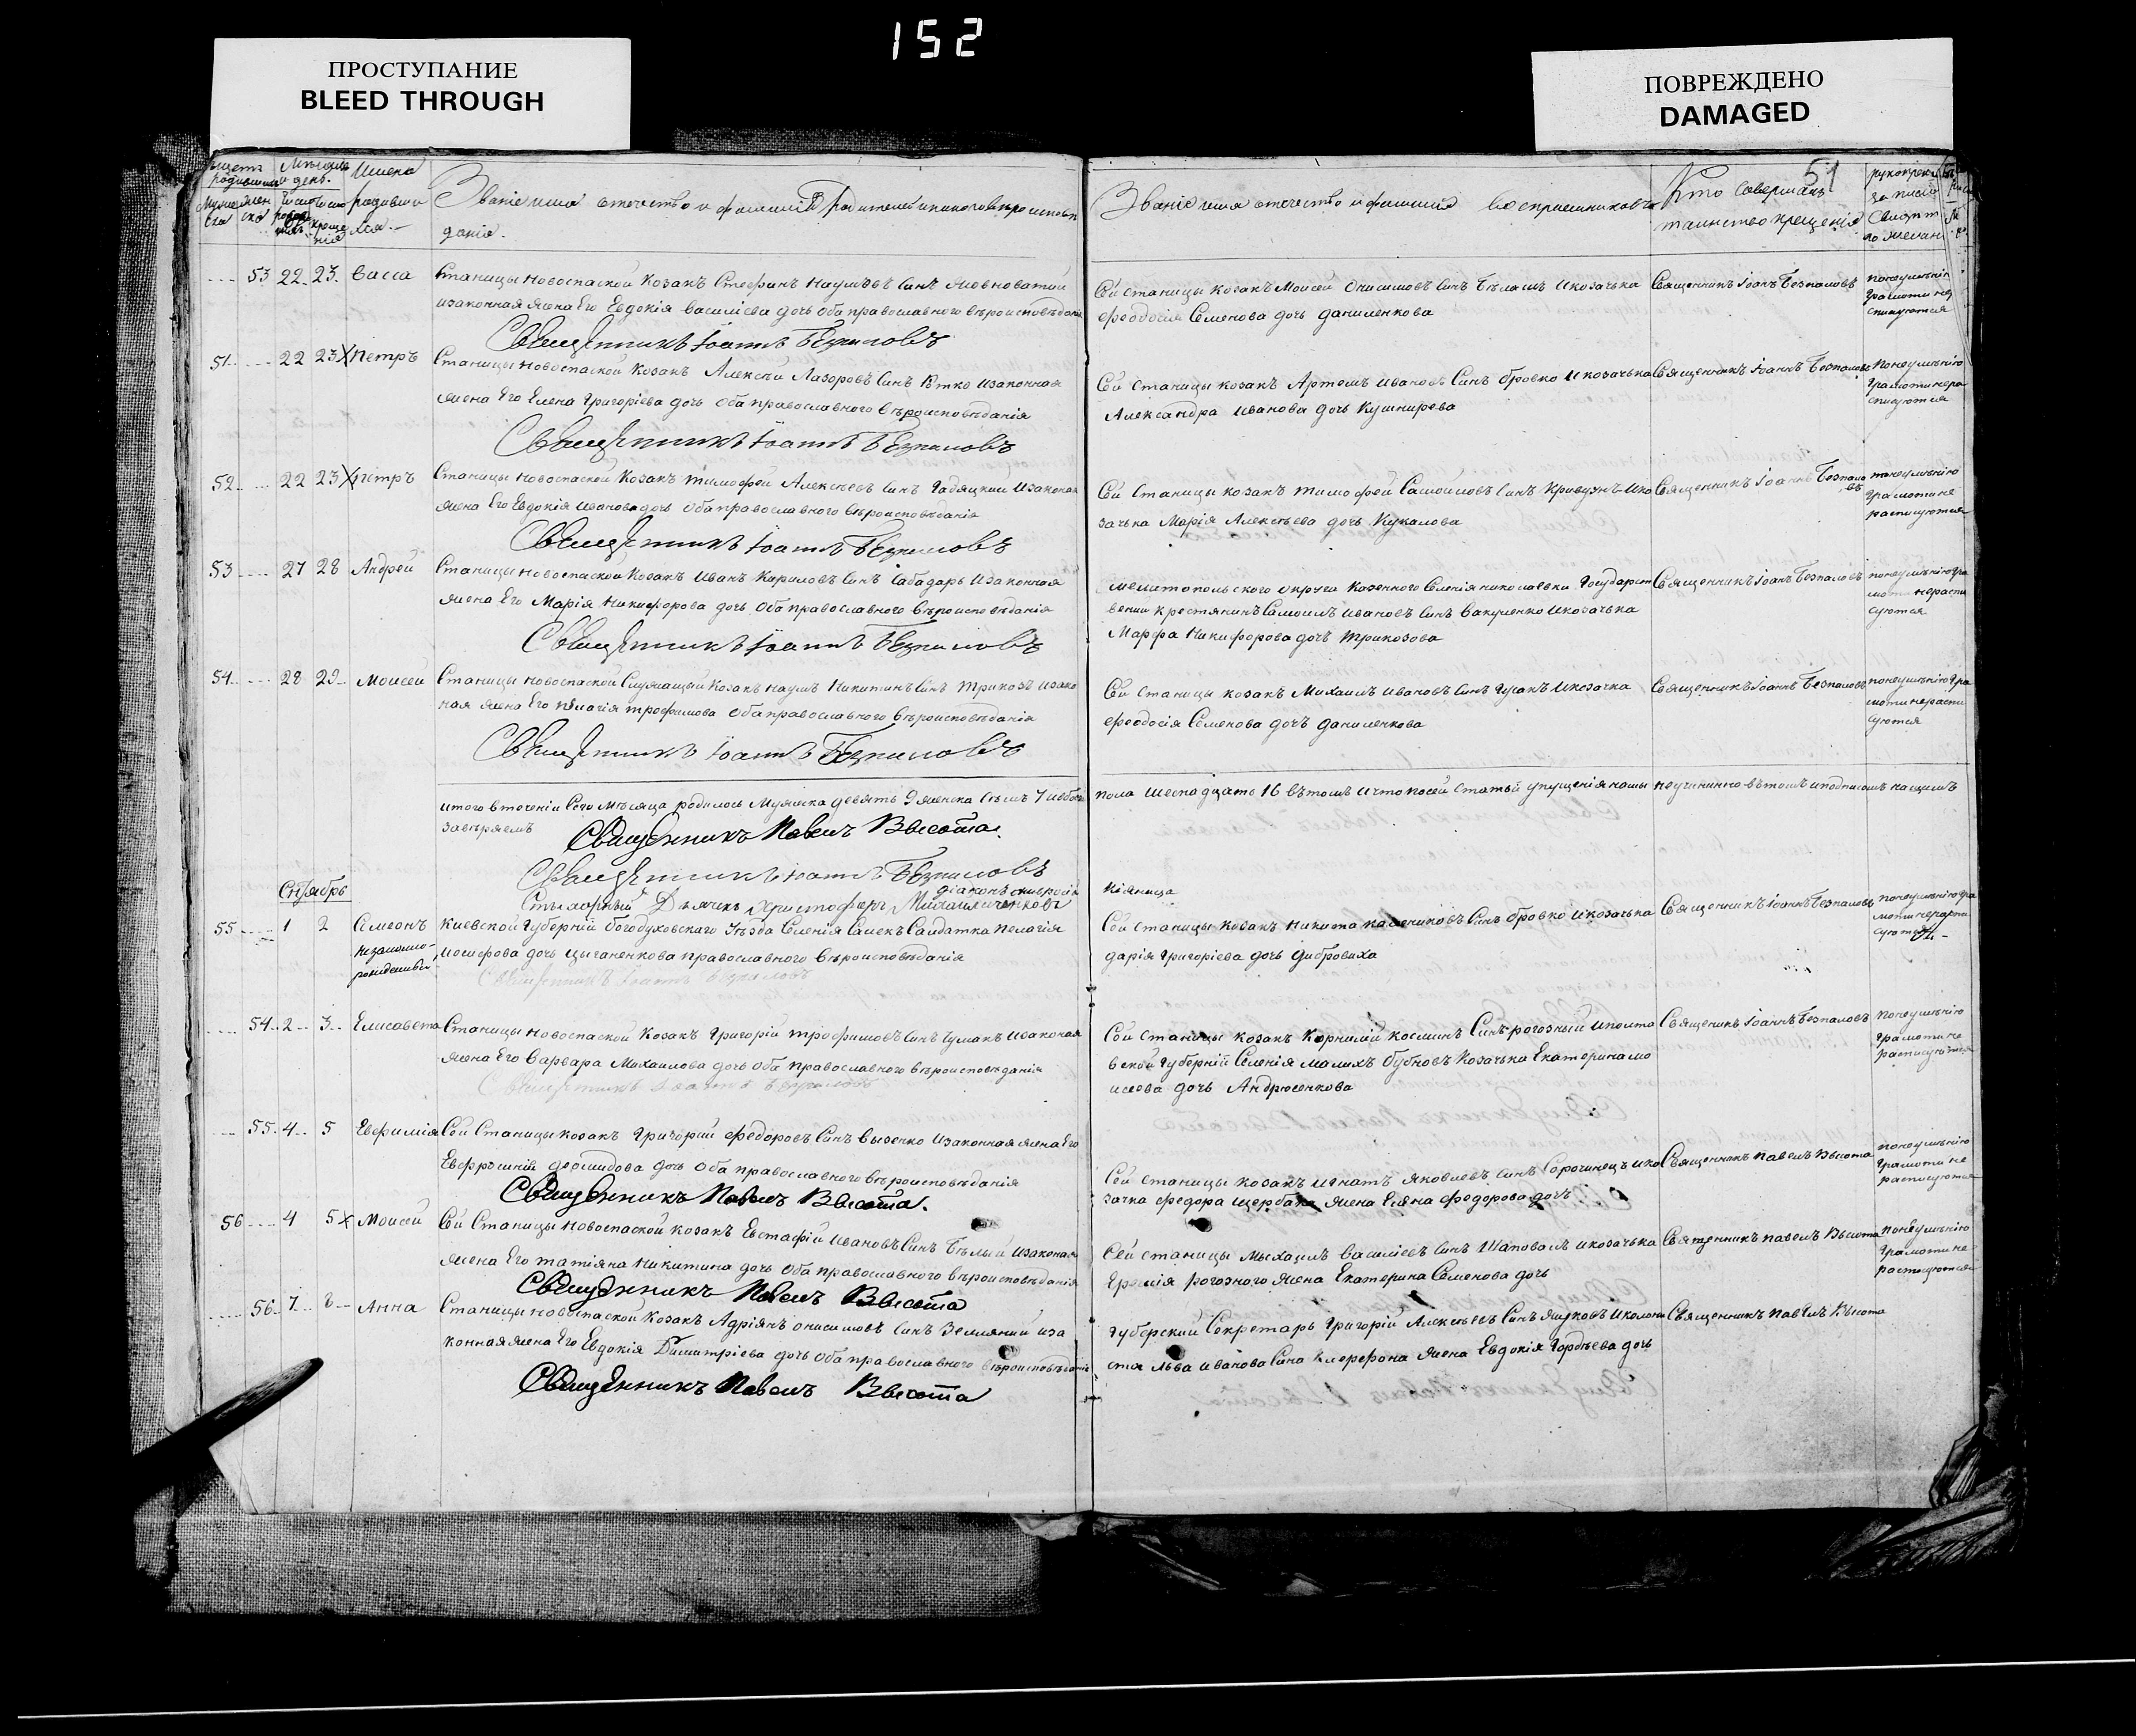 152
ПРОСТУПАНИЕ
BLEED THROUGH
ПОВРЕЖДЕНО
DAMAGED
51
Имена
родивши
лся.
Званіе имя отечество и фамилія родителей и какого вѣроисповѣ
данія.
Званіе имя отечество и фамилія воспріемниковъ
Кто совершалъ
таинство крещенія
53 22 23 Васса
Станицы Новоспаской козакъ Стефанъ Наумовъ синъ
и законная жена Его Евдокія Василіева дочь оба православного вѣроисповѣданія
Священникъ Іоаннъ Безпаловъ
Сей станицы козакъ Моисей Онисимовъ синъ Бѣлашъ и козачька
Феодосія Семенова дочь Даниленкова
Священникъ Іоаннъ Безпаловъ
понеумѣнію
грамоти не
51 22 23 X Петръ
Станицы Новоспаской козакъ Алексѣй Лазоровъ синъ Рѣтко и законная
жена Его Елена Григоріева дочь оба православного вѣроисповѣданія
Священникъ Іоаннъ Безпаловъ
Сей станицы козакъ Артемъ Ивановъ синъ Бровко и козачька
Александра Иванова дочь Кушнирева
Священникъ Іоаннъ Безпаловъ
Понеумѣнію
грамоти нера
списуются
52 22 23 X Петръ
Станицы Новоспаской козакъ Тимофей Алексѣевъ синъ Гадяцкий и законая
жена Его Евдокія Иванова дочь оба православного вѣроисповѣданія
Священникъ Іоаннъ Безпаловъ
Сей станицы козакъ Тимофей Самойловъ синъ Кривузнъ и ко
зачька Марія Алексѣева дочь Кукалова
Священникъ Іоаннъ Безпало
въ
понеумѣнію
грамоти не
расписуются
53 27 28 Андрей
Станицы Новоспаской козакъ Иванъ Кириловъ синъ Чабадарь и законная
жена Его Марія Никифорова дочь оба православного вѣроисповѣданія
Священникъ Іоаннъ Безпаловъ
Мелитопольского округи казенного селенія Николаевки государст
вении крестянинъ Самоилъ Ивановъ синъ Вакуленко и козачька
Марфа Никифорова дочь Трикозова
Священникъ Іоаннъ Безпаловъ
понеумѣнію гра
моти нераспи
суются
54 28 29 Моисей
Станицы Новоспаской служащый козакъ Наумъ Никитинъ синъ Трикозъ и зако
ная жена Его Пелагія Трофимова оба православного вѣроисповѣданія
Священникъ Іоаннъ Безпаловъ
Сей станицы козакъ Михаилъ Ивановъ синъ Гусакъ и козачка
Феодосія Семенова дочь Даниленкова
Священникъ Іоаннъ Безпаловъ
понеумѣнію гра
моти нераспи
суются
итого втеченіи сего мѣсяца родилось мужеска девять 9 женска семъ 7 и обоего
пола шеснадцать 16 вътомъ и что посей статьй упущенія нашы неучинино вътомъ и подписомъ нашимъ
завѣряемъ
Священникъ Павелъ Высота.
Священникъ Іоаннъ Безпаловъ
Стихарный Дьячекъ Христофоръ Михайличенковъ
Сентябрь
55 1 2 Симеонъ
незаконно-
рожденный
Киевской губерній Богодуховскаго уѣзда селенія Самекъ салдатка Пелагія
Иосифова дочь Цыганенкова православного вѣроисповѣданія
Священникъ Іоаннъ Безпаловъ
Сей станицы козакъ Никита Калениковъ синъ Бровко и козачька
Дарія Григоріева дочь Дибровиха
Священникъ Іоаннъ Безпаловъ
понеумѣнію гра
моти нераспи
суются
54 2 3 Елисавета
Станицы Новоспаской козакъ Григорій Трофимовъ синъ Чумакъ и законая
жена Его Варвара Михаилова дочь оба православного вѣроисповѣданія
Священникъ Іоаннъ Безпаловъ
Сей станицы козакъ Корнилій Косминъ синъ Рогозный и полта
вской губерній селенія Малихъ Бубновъ козачька Екатерина мо
исеова дочь Андрюсенкова
Священикъ Іоаннъ Безпаловъ
понеумѣнію
грамоти не
расписуются
55 4 5 Евфимія
Сей станицы козакъ Григорий Федоровъ синъ Высенко и законная жена Его
Евфросинія Деомидова дочь оба православного вѣроисповѣданія
Священникъ Павелъ Высота.
Сей станицы козакъ Игнатъ Яковлевъ синъ Сорочинецъ и ко
зачка Федора Щербака жена Елена Федорова дочь
Священникъ Павелъ Высота
понеумѣнію
грамоти не
расписуются
56 4 5 X Моисей
Сей Станицы Новоспаской козакъ Евстафій Ивановъ синъ Бѣлый и законая
жена Его Татіяна Никитина дочь оба православного вѣроисповѣданія
Священникъ Павелъ Высота
Сей станицы Мыхаилъ Василіевъ синъ Шаповалъ и козачька
Еремія Рогозного жена Екатерина Семенова дочь
Священникъ Павелъ Высота
понеумѣнію
грамоти не
расписуются
56 7 8 Анна
Станицы Новоспаской козакъ Адріянъ Онисимовъ синъ Земляний и за
конная жена Его Евдокія Димитріева дочь оба православного вѣроисповѣданія
Священникъ Павелъ Высота
Губерский Секретарь Григорій Алексѣевъ синъ Яцуковъ и колони
ста Льва Иванова сина жена Евдокія Гордѣева дочь
Священникъ Павелъ Высота